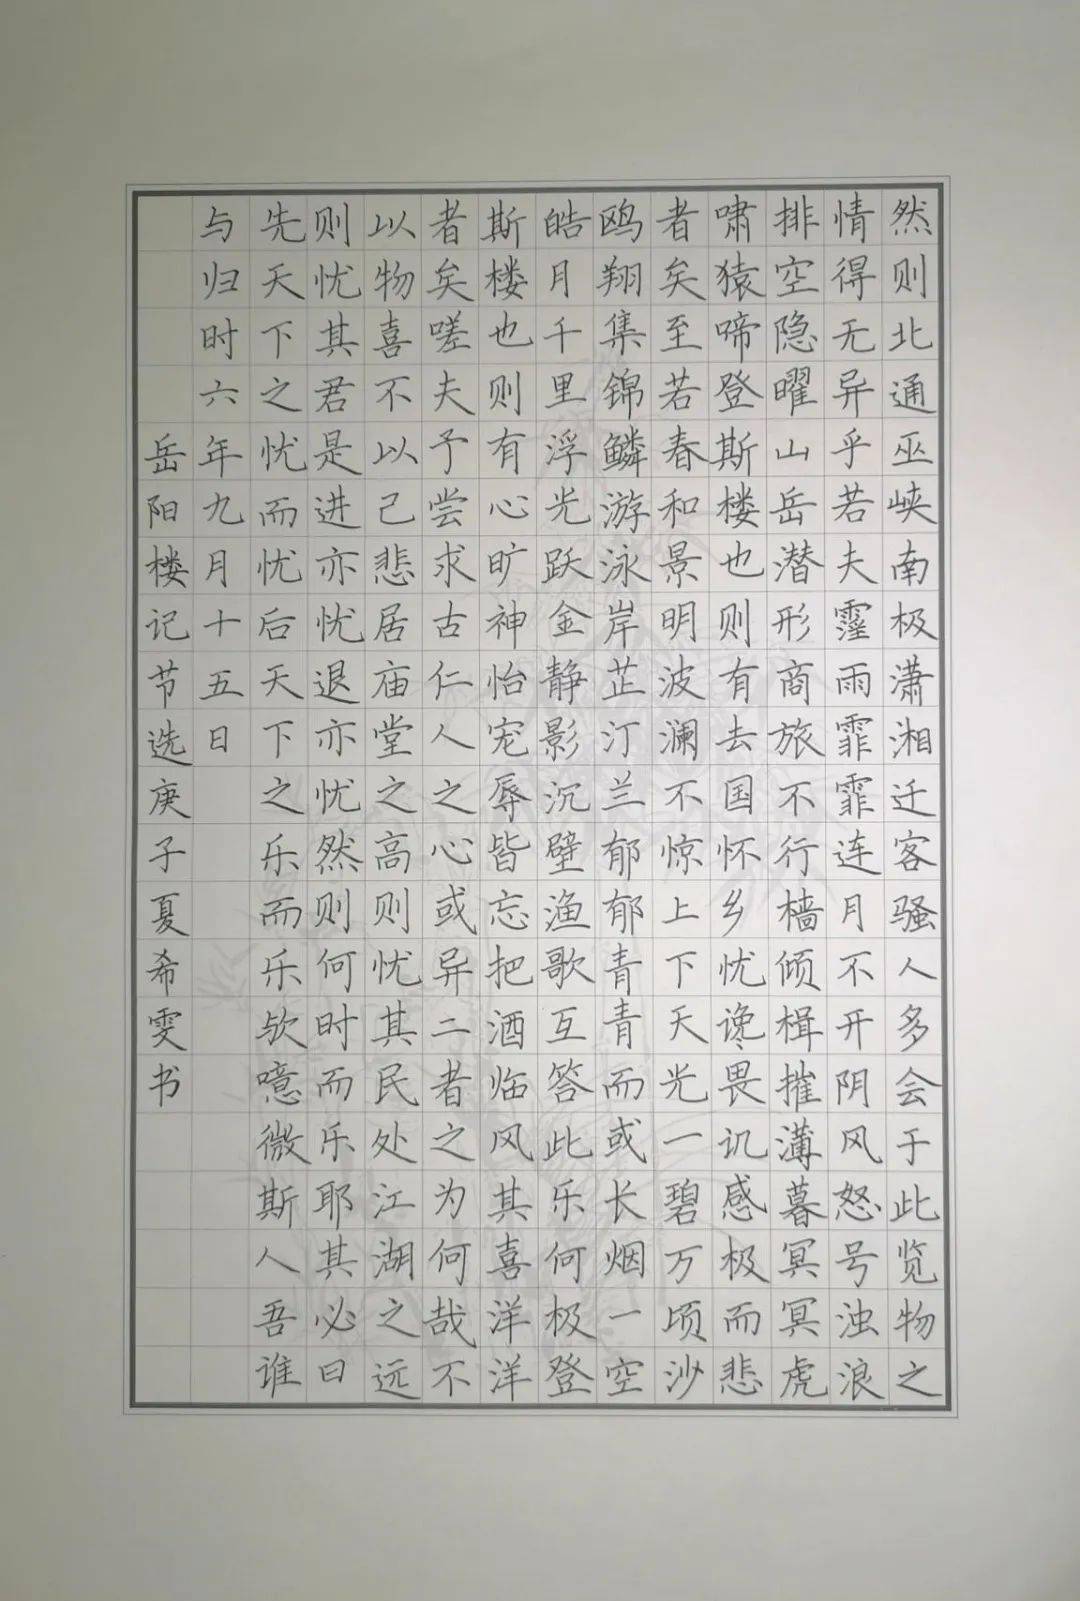 然则北通巫峡南极潇湘迁客骚人多会于此览物之
情得无异乎若夫霪雨霏霏连月不开阴风怒号浊浪
排空隐曜山岳潜形商旅不行樯倾楫摧薄暮冥冥虎
啸猿啼登斯楼也则有去国怀乡忧谗畏讥感极而悲
者矣至若春和景明波澜不惊上下天光一碧万顷沙
鸥翔集锦鳞游泳岸芷汀兰郁郁青青而或长烟一空
皓月千里浮光跃金静影沉璧渔歌互答此乐何极登
斯楼也则有心旷神怡宠辱皆忘把酒临风其喜洋洋
者矣嗟夫予尝求古仁人之心或异二者之为何哉不
以物喜不以己悲居庙堂之高则忧其民处江湖之远
则忧其君是进亦忧退亦忧然则何时而乐耶其必曰
先天下之忧而忧后天下之乐而乐欤噫微斯人吾谁
与归时六年九月十五日
岳阳楼记节选庚子夏希雯书